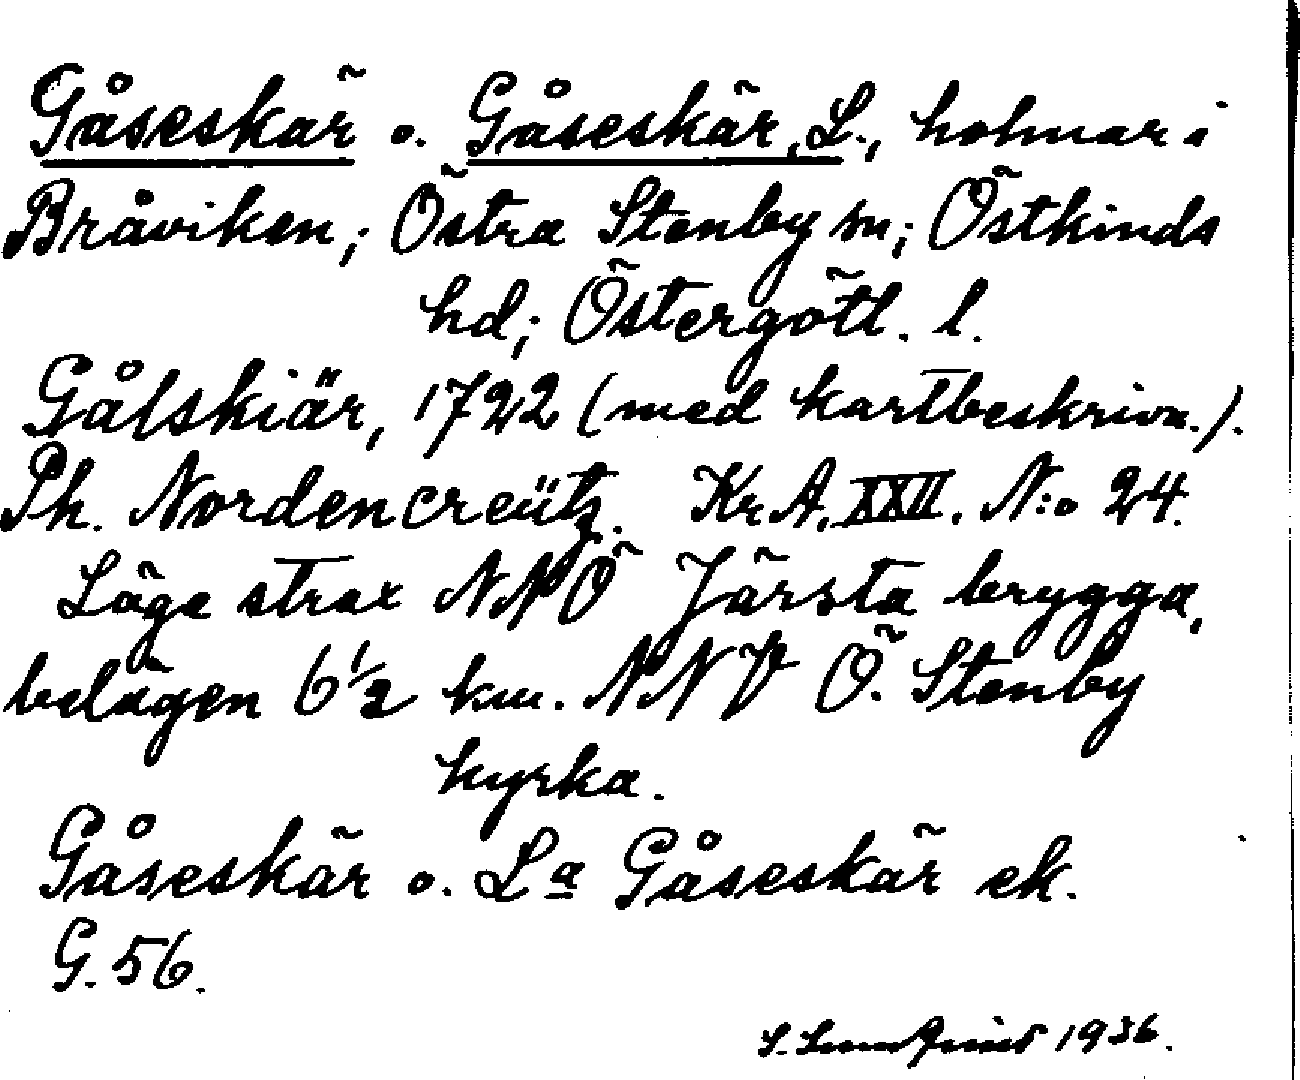 Gåseskär o. Gåseskär, L., holmar i
Bråviken; Östra Stenby sn; Östkinds
hd; Östergötl. l.
Gålskiär, 1722 (med kartbeskrivn.).
Ph. Nordencreütz. Kr. A. XXII. N:o 24.
Läge strax NNÖ Järsta brygga,
belägen 6½ km. NNV Ö. Stenby
kyrka.
Gåseskär o. La Gåseskär ek.
G. 56.
1936.